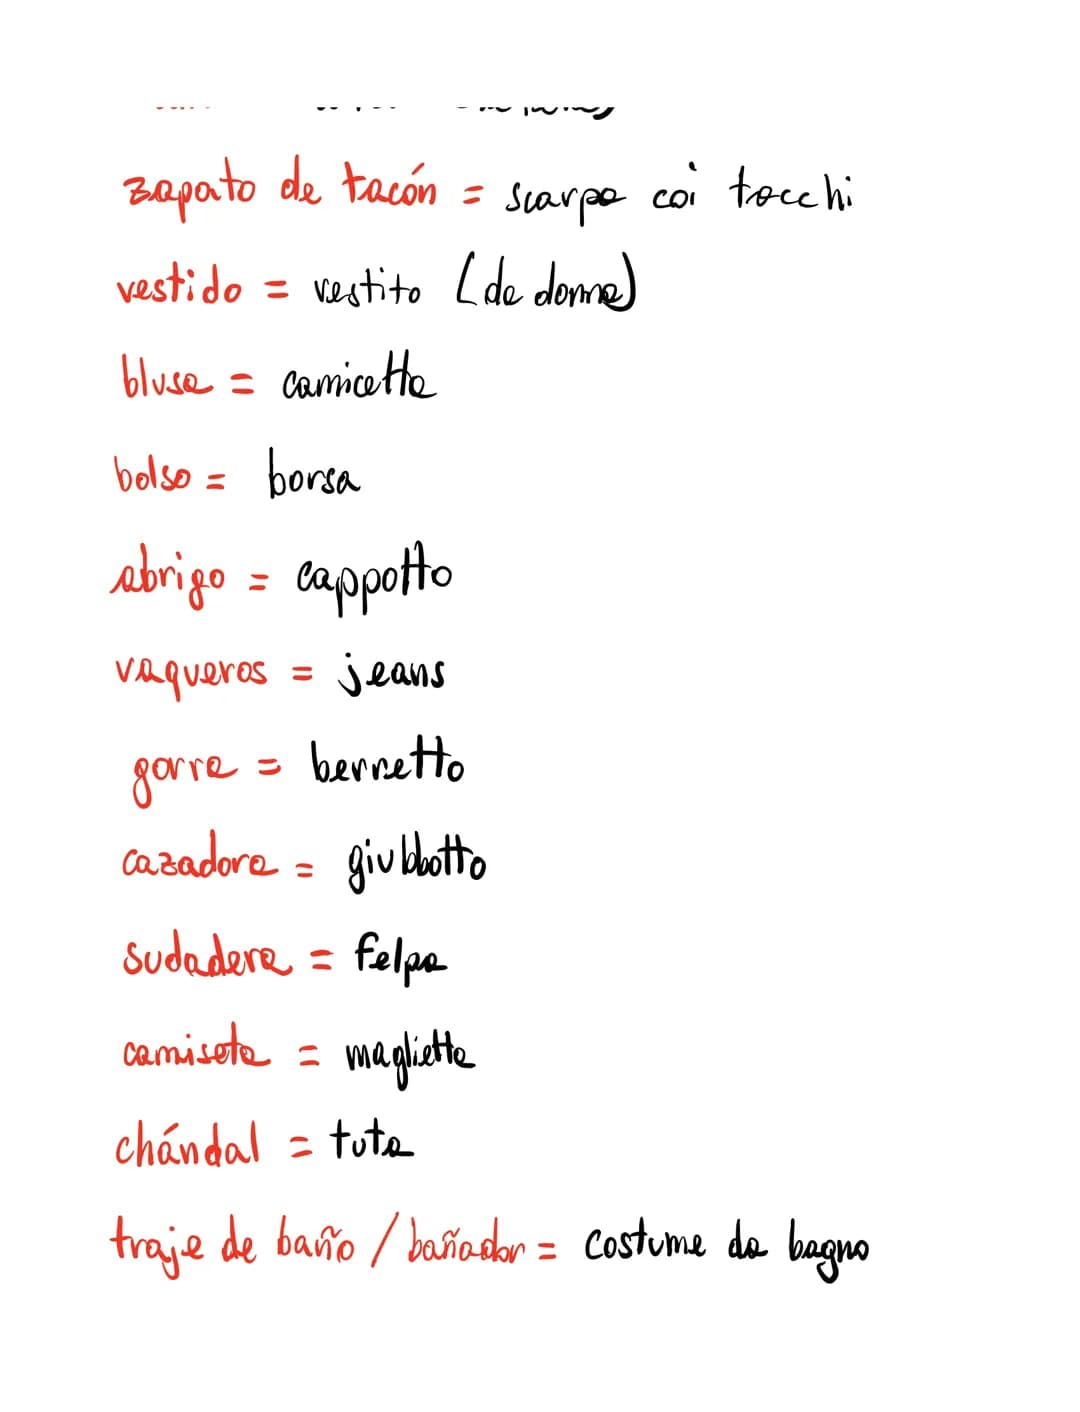 zapato de tacón = scarpa coi tacchi
vestido = vestito (da donna)
blusa = camicetta
bolso = borsa
abrigo = cappotto
vaqueros = jeans
gorra = berretto
cazadora = giubbotto
sudadera = felpa
camiseta = maglietta
chándal = tuta
traje de baño / bañador = costume da bagno